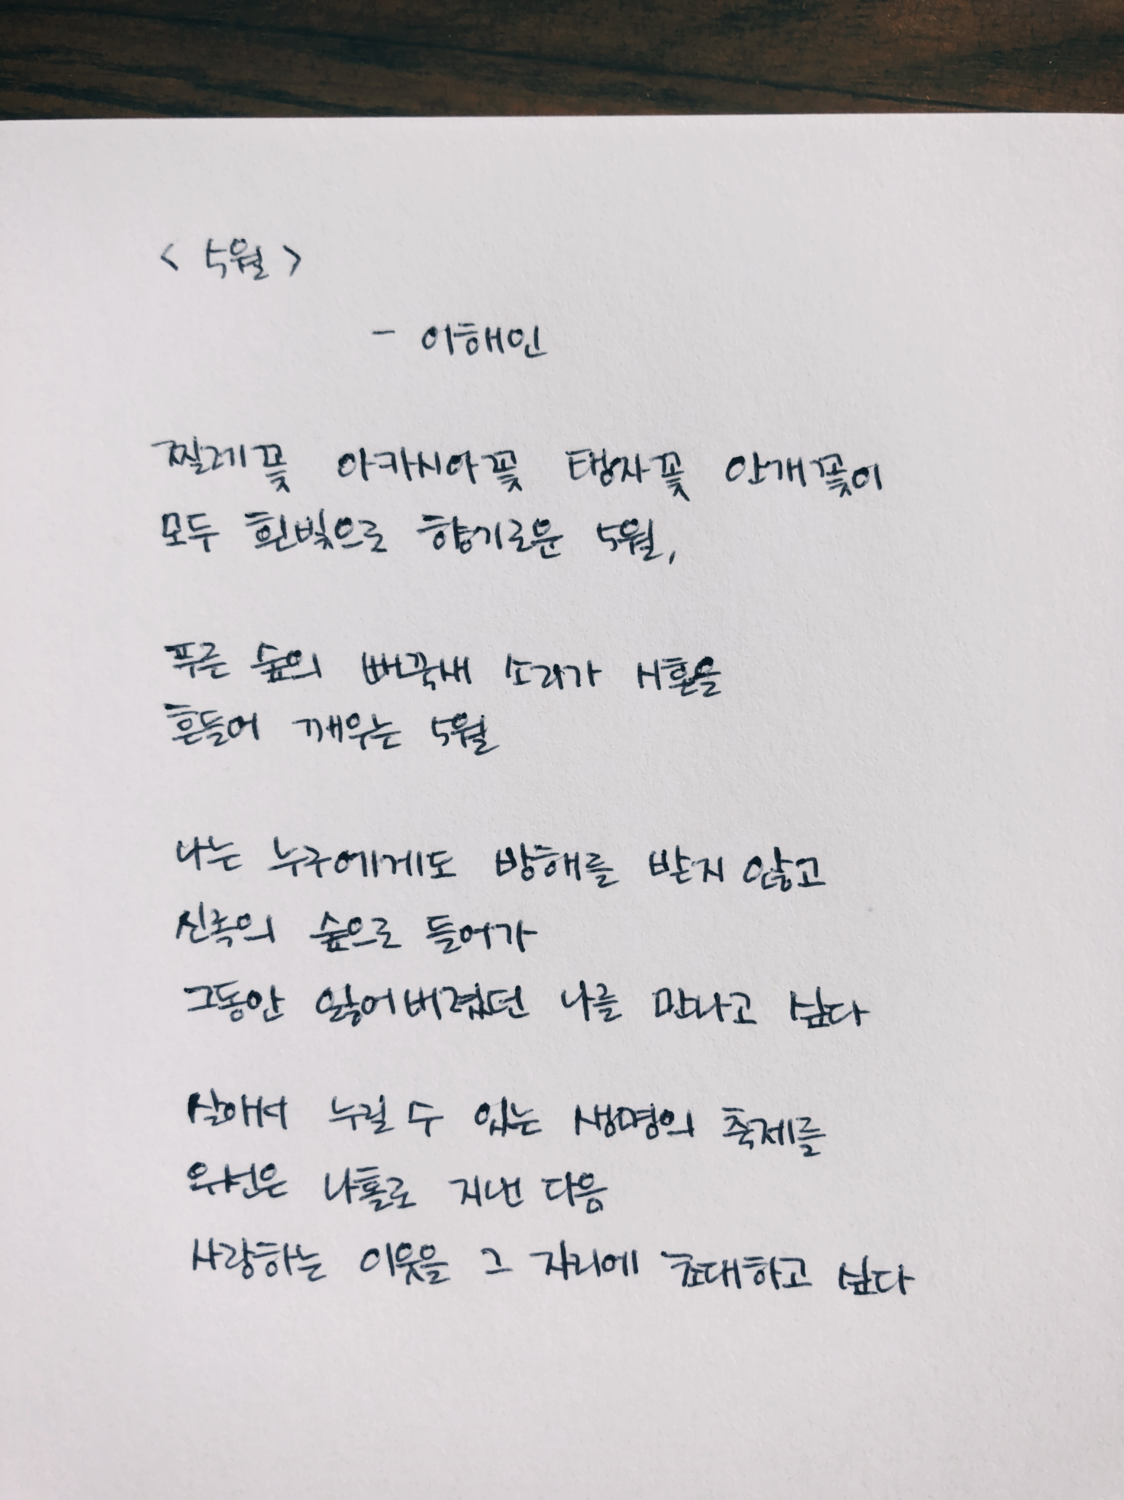 < 5월 >
- 이해인
찔레꽃 아카시아꽃 탱자꽃 안개꽃이
모두 흰빛으로 향기로운 5월,
푸른 숲의 뻐꾹새 소리가 시혼을
흔들어 깨우는 5월
나는 누구에게도 방해를 받지 않고
신록의 숲으로 들어가
그동안 잃어버렸던 나를 만나고 싶다
살아서 누릴 수 있는 생명의 축제를
우선은 나홀로 지낸 다음
사랑하는 이웃을 그 자리에 초대하고 싶다